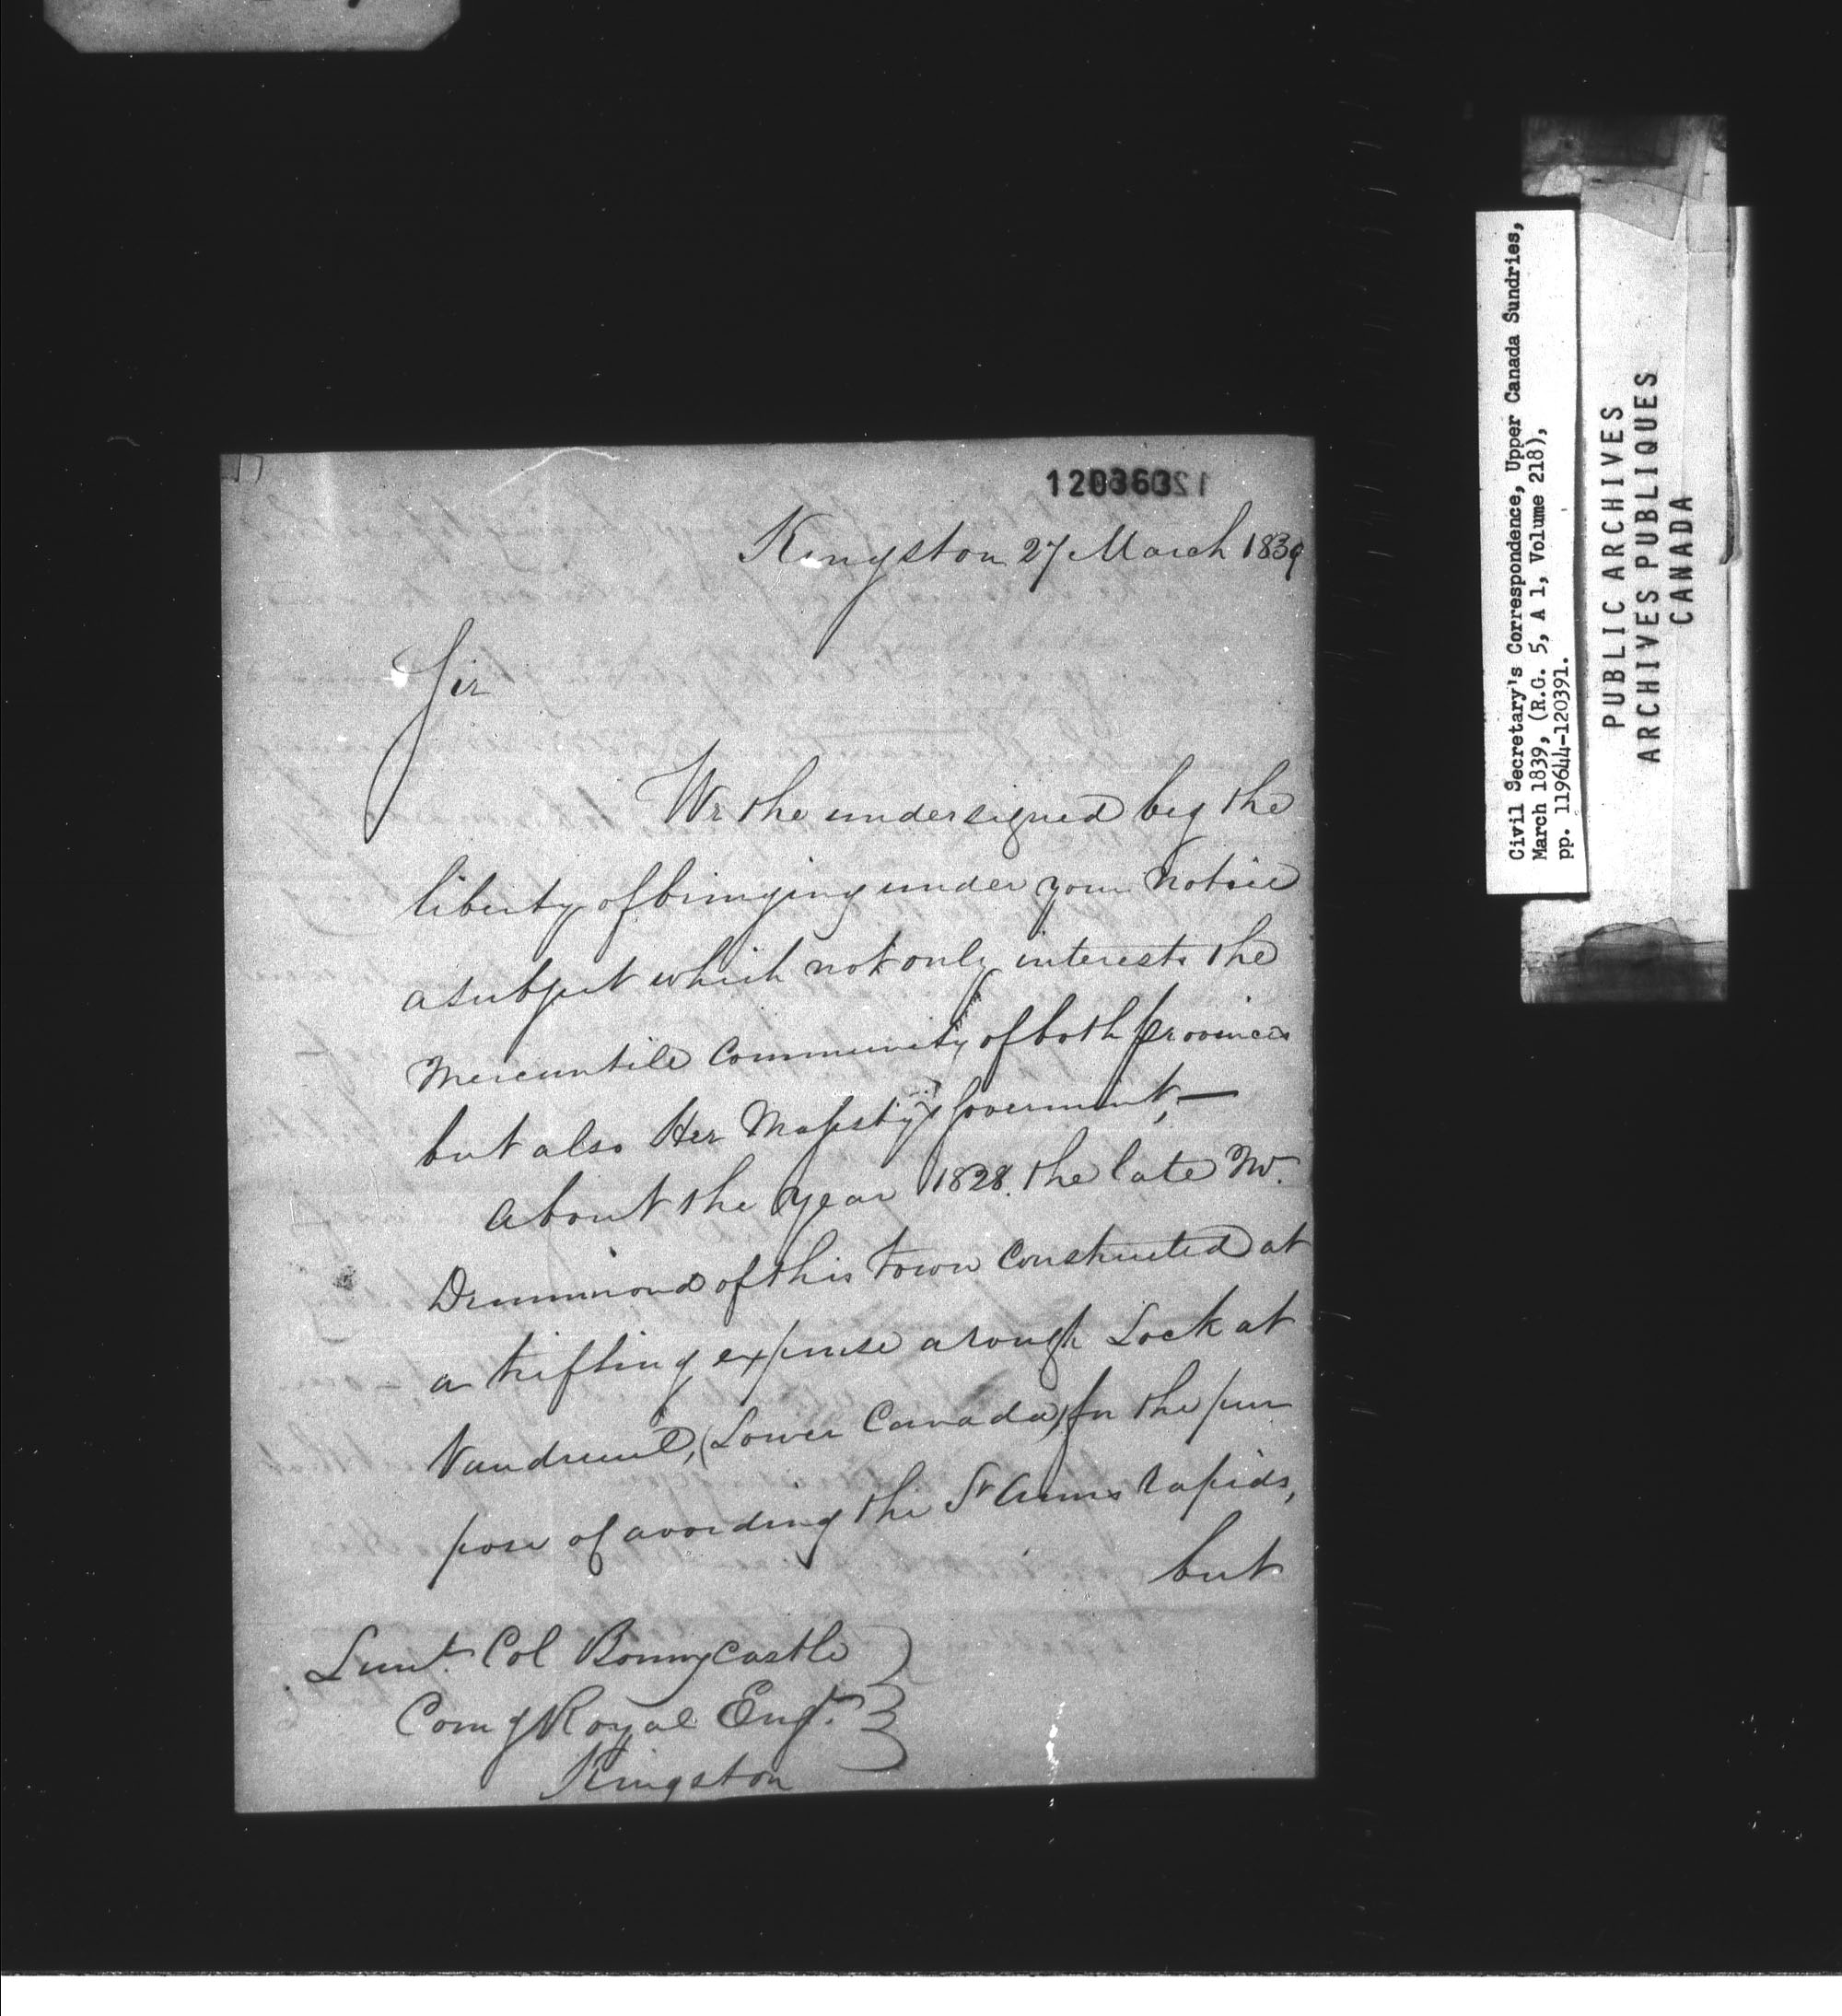 120363
Kingston 27 March 1839
Sir
We the undersigned beg the
liberty of bringing under your Notice
a subject which not only interests the
Mercantile Community of both provinces
but also Her Majesty's Government, —
About the Year 1828. the late Mr.
Drummond of this Town Constructed at
a trifling expense a rough Lock at
Vaudreuil, (Lower Canada) for the pur
pose of avoiding the St Anns Rapids,
but
Lieut. Col Bonnycastle
Comg Royal Engr.
Kingston
Civil Secretary's Correspondence, Upper Canada Sundries,
March 1839, (R.G. 5, A 1, Volume 218),
pp. 119644-120391.
PUBLIC ARCHIVES
ARCHIVES PUBLIQUES
CANADA